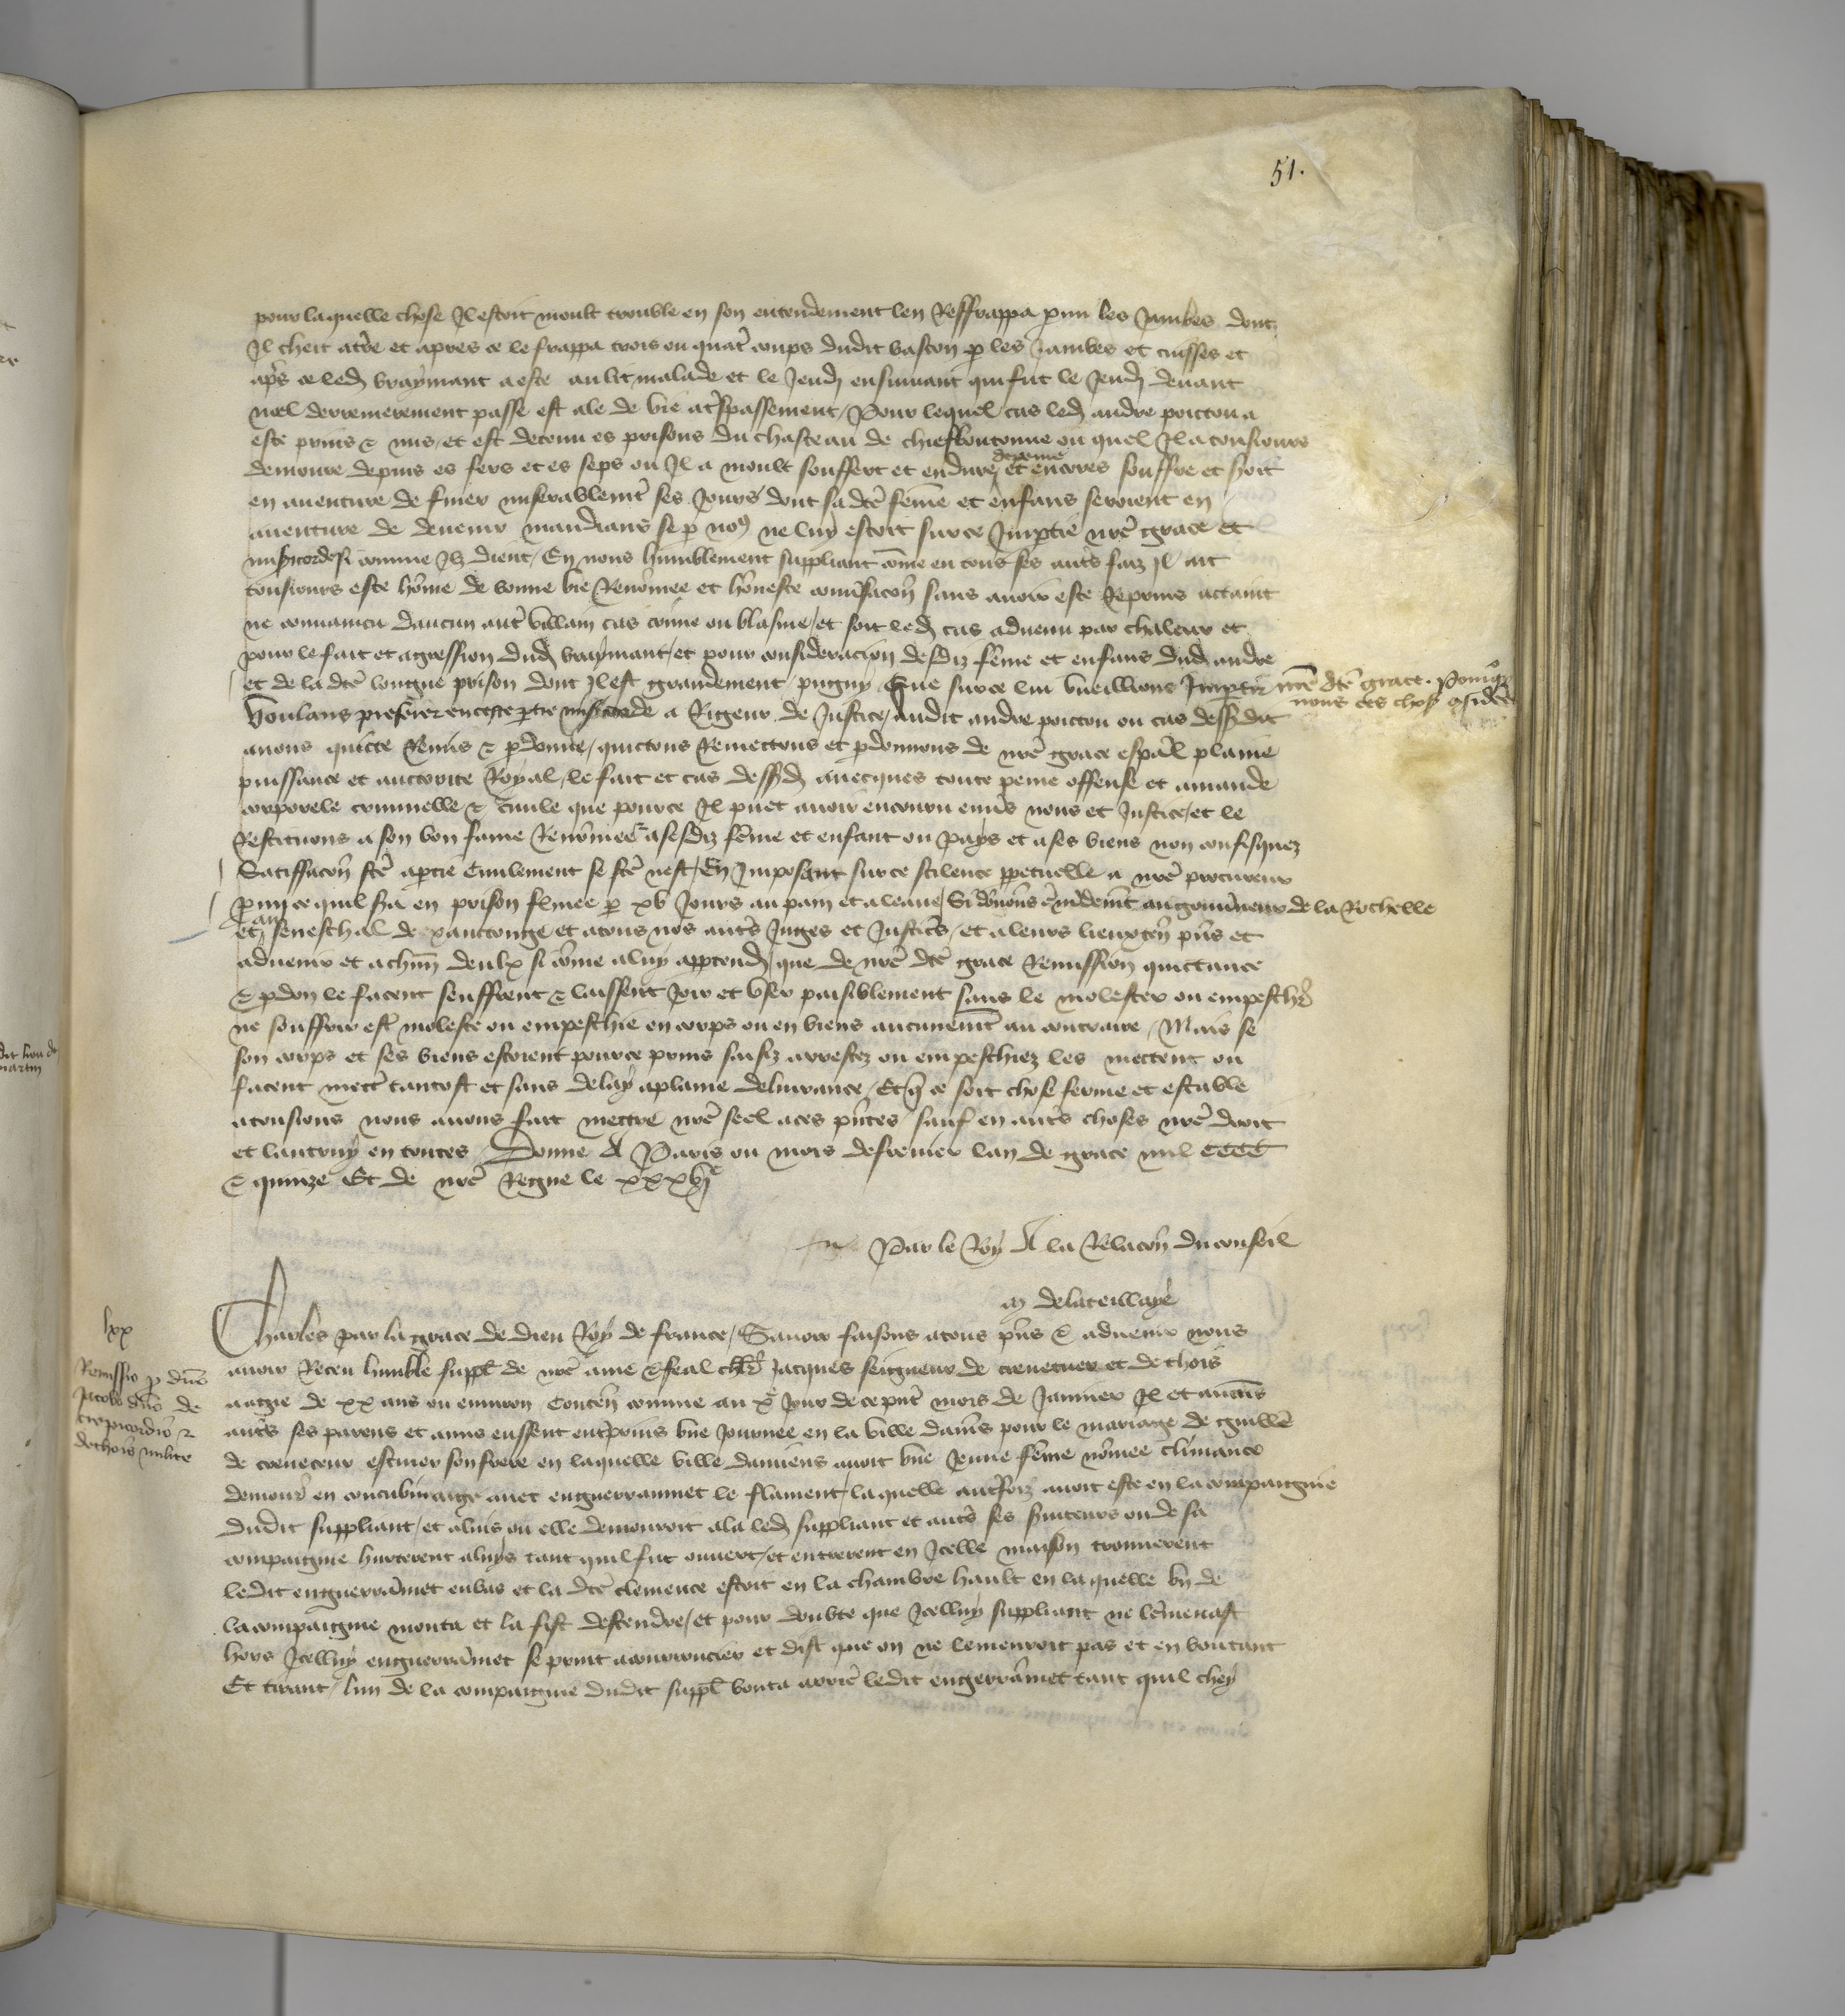 51.
pour laquelle chose Il estoit moult trouble en son entendement len Reffrappa p̱mi les Jambes dont
Il cheit at̃re et apres ce le frappa trois ou quat̃ coups dudit baston p̱ les Jambes et cuisses et
ap̃s ce led̃ vraymant a este au lit malade et le Jeud̃ ensuivant qui fut le Jeud̃ devant
noel derrenierement passe est ale de vie at̃spassement / Pour lequel cas led̃ andre poictou a
este prins & mis / et est detenu es prisons du chasteau de chiefboutonne ou quel Il a tousiours
demoure depuis es fers et es seps ou Il a moult souffert et endure et encores souffre et soit
en aventure de finer miserablem̃t ses Jours dont sa dt̃e fem̃e et enfans seroient en
aventure de devenir mandians se p̱ noꝰ ne luy estoit sur ce Imp̱tie nr̃e grace et
misericorde si comme Ilz dient / En nous humblement suppliant cõme en tous ses aut̃s faiz Il ait
tousiours este hõme de bonne vie Renõmee et hõneste conũsacõn sans avoir este Reprins actaint
ne convaincu daucun aut̃ villain cas crime ou blasme / et soit led̃ cas advenu par chaleur et
pour le fait et agression dud̃ vraymant / et pour consideracion desdiz fẽme et enfans dud̃ andre
et de la dt̃e longue prison dont Il est grandement pugny Que sur ce lui vueillions Imp̱tir nr̃e dt̃e grace. Pourq̃
nous ces choses ↄsid̃es
Voulans preferer en ceste p̱tie misericorde a Rigeur de Justice / audit andre poictou ou cas dessusdit
avons quicte Remis & p̱donne / quictons Remectons et p̱donnons de nr̃e grace esp̃al plaine
puissance et auctorite Royal / le fait et cas dessusd̃ avecques toute peine offense et amande
corporele criminelle & civile que pour ce Il puet avoir encouru env̄s nous et Justice / et le
Restituons a son bon fame Renõmee a sesdiz fẽme et enfant ou pays et a ses biens non confisquez
Satisfacõn fc̃e a p̱tie Civilement se fc̃e nest / En Imposant sur ce scilence p̱petuelle a nr̃e procureur
p̱my ce quil sera en prison fermee p̱ xv Jours au pain et a leaue / Si dõnons ẽ mandem̃t au gouv̄neur de la Rochelle
et au seneschal de xanctonge et a tous nos aut̃s Juges et Justic̃s / et a leurs lieuxten̄ p̃ns et
advenir et a chũn deulx si cõme a luy app̱tendra / que de nr̃e dt̃e grace Remission quictance
& p̱don le facent seuffrent & laissent Joir et user paisiblement sans le molester ou empeschẽr
ne souffrir est̃ moleste ou empeschie en corps ou en biens aucunem̃t au contraire / Mais se
son corps et ses biens estoient pour ce prins saisiz arrestez ou empeschiez les mettent ou
facent mect̃ tantost et sans delay a plaine delivrance / Et q̃ ce soit chose ferme et estable
a tousiours nous avons fait mettre nr̃e seel a ces p̃ntes sauf en aut̃s choses nr̃e droit
et lautruy en toutes Donne A Paris ou mois de fevrier lan de grace mil cccc
& quinze Et de nr̃e Regne le xxxvj̃e
Par le Roy A la Relacõn du conseil
M̃ delateillaye
lxx
Remissio p̱ dño
Jacobo dño de
crepicordio &
dethois milite
Charles par la grace de dieu Roy de france / Savoir faisons a tous p̃ns & advenir nous
avoir Receu humble suppl̃ de nr̃e ame & feal chl̃r Jacques seigneur de crevecuer et de thois
aagie de xx ans ou environ Conten̄ comme au xe Jour de ce p̃nt mois de Janvier Il et aucũs
aut̃s ses parens et amis eussent entp̱rins une Journee en la ville damiens pour le mariage de guill̃e
de crevecuer escuier son frere en laquelle ville damiens avoit une Jeune fẽme nõmee climance
demour̃ en concubinaige avec enguerrannet le flament / laquelle aut̃foiz avoit este en la compaignie
dudit suppliant / et a luis ou elle demouroit ala led̃ suppliant et aut̃s ses serviteurs ou de sa
compaignie hurterent a luys tant quil fut ouvert / et entrerent en Icelle maison trouverent
ledit enguerrãnet en bas et la dt̃e clemence estoit en la chambre hault en laquelle un de
la compaignie monta et la fist descendre / et pour doubte que Icelluy suppliant ne lẽmenast
hors Icelluy enguerrãnet se print a courroucier et dist que on ne lemenroit pas et en boutant
Et tirant / lun de la compaignie dudit suppl̃ bouta arrier̃ ledit engerrãnet tant quil chey